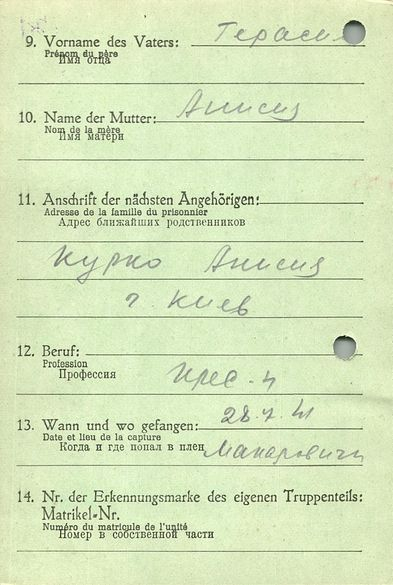 9. Vorname des Vaters: Гераси
Prénom du père
Имя отца
10. Name der Mutter: Анисия
Nom de la mère
Имя матери
11. Anschrift der nächsten Angehörigen:
Adresse de la famille du prisonnier
Адрес ближайших родственников
Курко Анисия
г. Киев
12. Beruf:
Profession
Профессия
13. Wann und wo gefangen: 28.7.41
Date et lieu de la capture
Когда и где попал в плен Макаровичи
14. Nr. der Erkennungsmarke des eigenen Truppenteils:
Matrikel-Nr.
Numéro du matricule de l'unité
Номер в собственной части